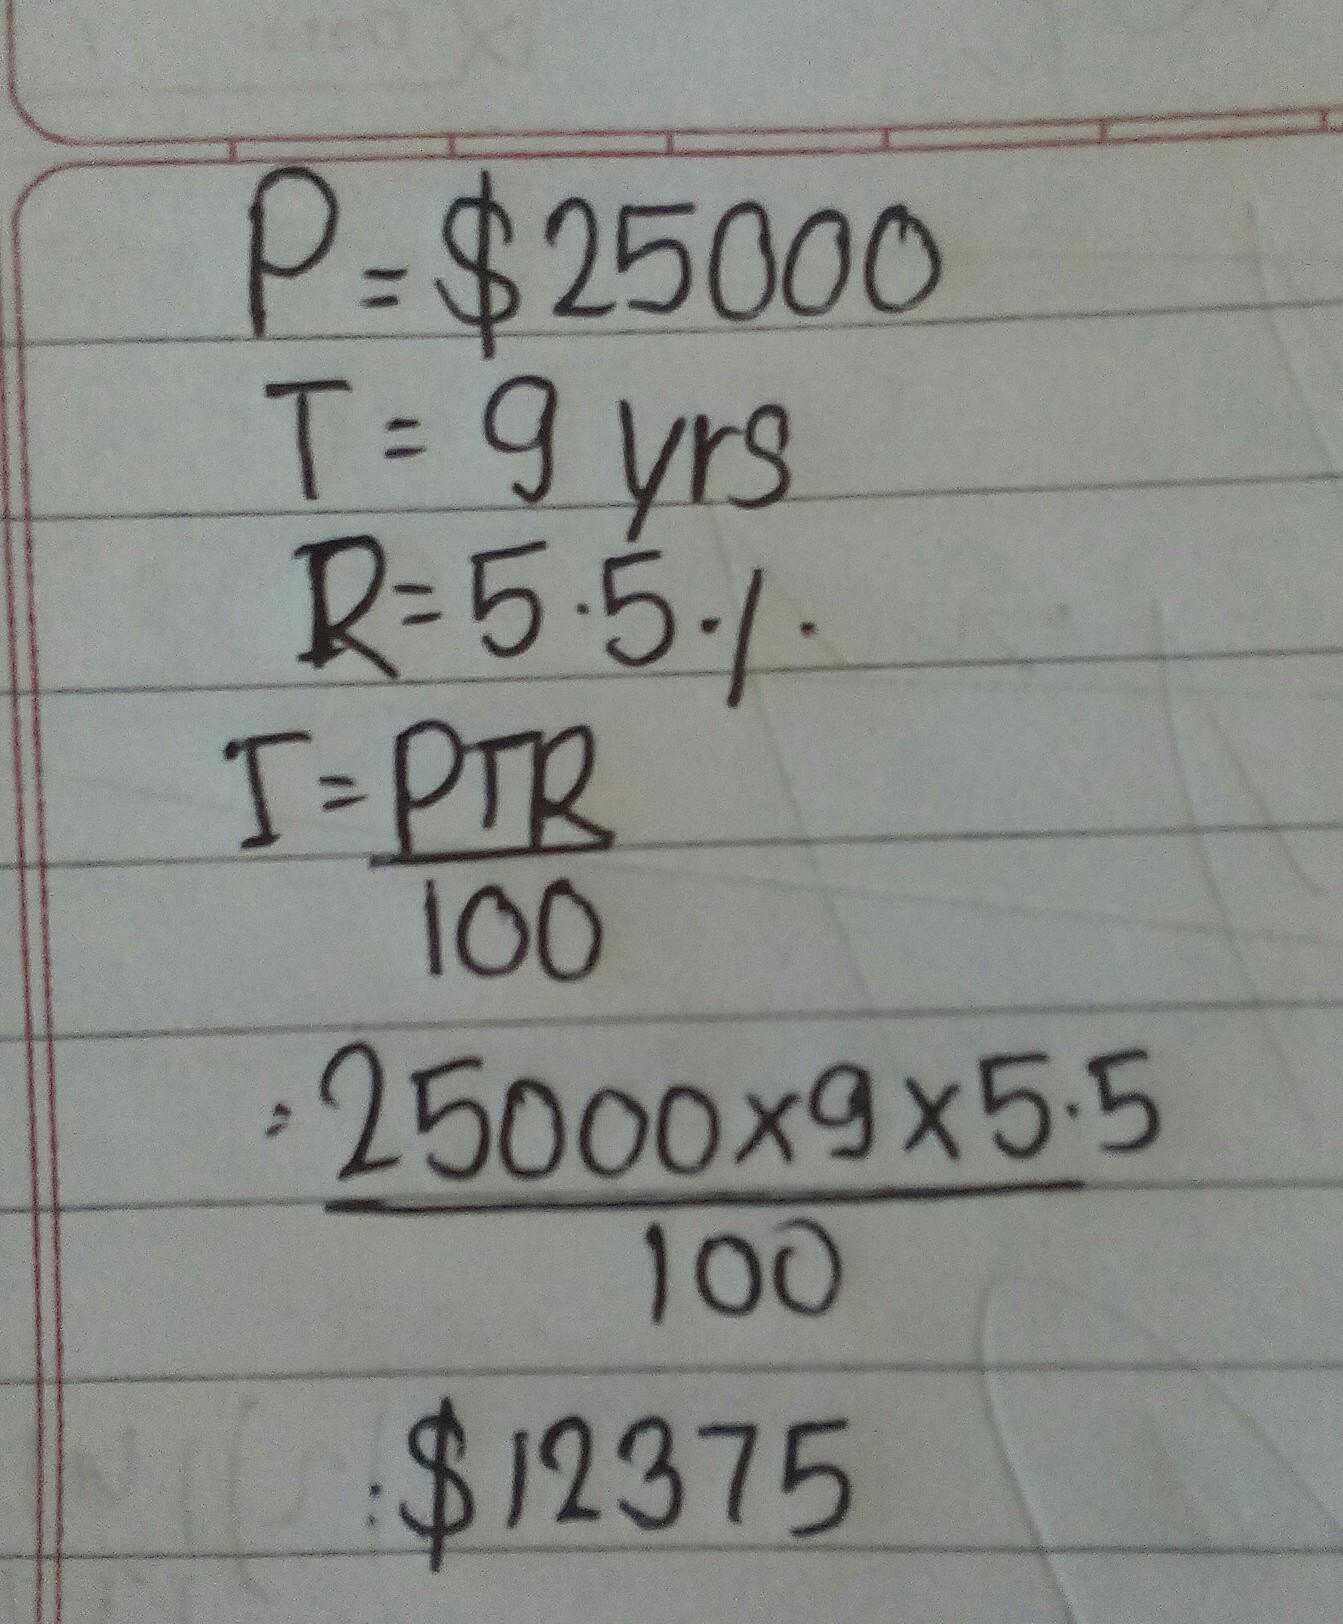 P = $25000
T = 9 yrs
R = 5.5%
I = PTR
100
= 25000 x 9 x 5.5
100
: $12375